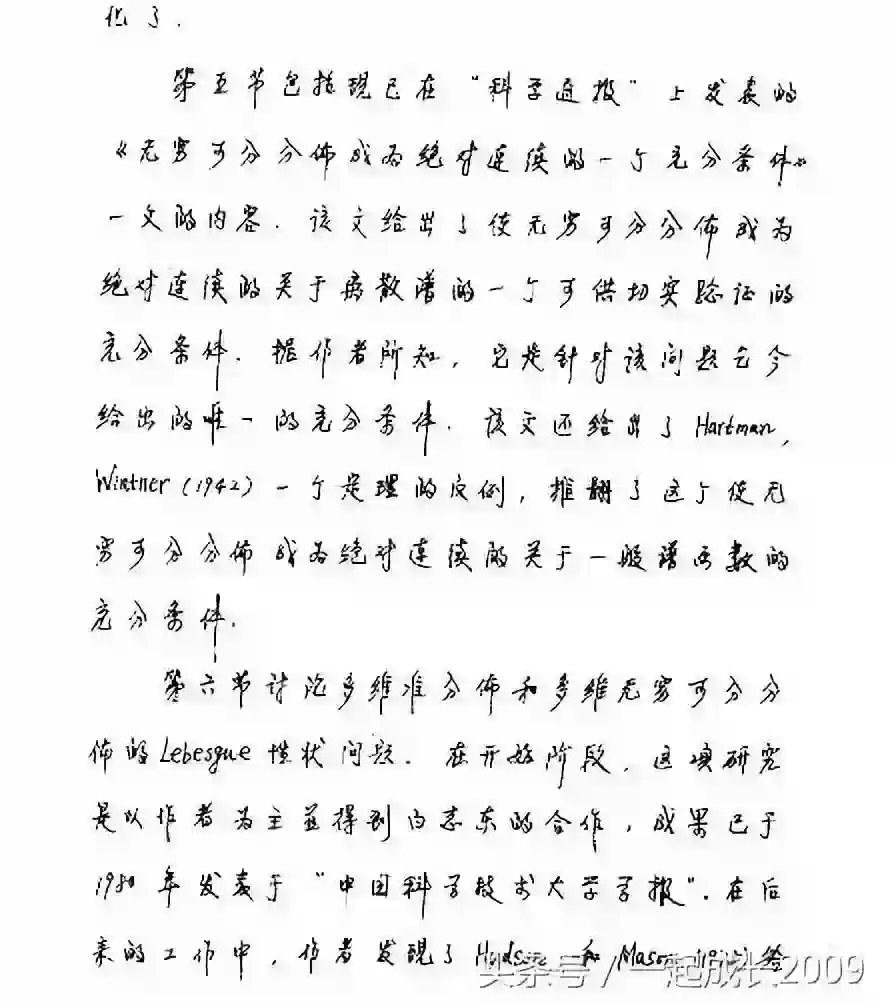 化了.
第五节包括现已在“科学通报”上发表的
《无穷可分分佈成为绝对连续的一个充分条件》
一文的内容. 该文给出了使无穷可分分佈成为
绝对连续的关于离散谱的一个可供切实验证的
充分条件. 据作者所知, 它是针对该问题迄今
给出的唯一的充分条件. 该文还给出了 Hartman,
Wintner (1942) 一个定理的反例, 推翻了这个使无
穷可分分佈成为绝对连续的关于一般谱函数的
充分条件.
第六节讨论多维准分佈和多维无穷可分分
佈的 Lebesgue 性状问题. 在开始阶段, 这项研究
是以作者为主并得到向志东的合作, 成果已于
1980 年发表于“中国科学技术大学学报”. 在后
来的工作中, 作者发现了 Hudson 和 Mason 给
头条号 / 一起成长2009